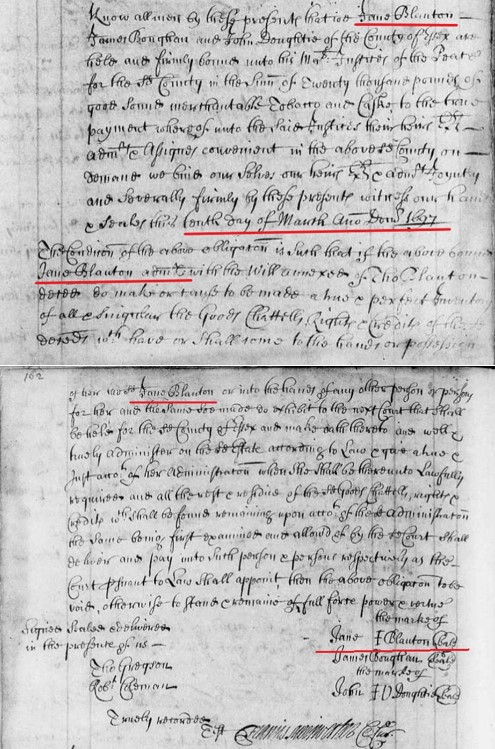 Know all men by these presents that we Jane Blanton
James Boughan and John Doughtie of the County of Essex are
held and firmly bound unto his Matys Justices of the Peace
for the sd County in the Summ of Twenty thousand pounds of
good sound merchantable Tobacco and Caske to the true
payment whereof unto the said Justices their heirs Exrs
Admrs & Assignes convenient in the abovesd County on
demand we bind our selves our heirs Exrs & admrs Joyntly
and severally firmly by these presents witness our hands
& Seales this tenth day of March Ano Domi 1697
The Condition of the above obligation is such that if the above bound
Jane Blanton admrx with the Will annexed of Tho Blanton
deced do make or cause to be made a true & perfect Inventory
of all & Singular the Goods Chattells, Rights & Credits of the sd
deced wch have or shall come to the hands or possession
162
of her the sd Jane Blanton or into the hands of any other person or persons
for her and the same soe made do exhibit to the next Court that shall
be held for the sd County of Essex and make oath thereto and well &
truely administer on the sd Estate according to Law & give a true &
Just accot of her Administration when She shall be thereunto Lawfully
required and all the rest & residue of the sd Goods Chattells, rights &
credits wch shall be found remaining upon accot of the sd Administration
the same being first examined and allowd of by the sd Court shall
deliver and pay unto such person & persons respectively as the
Court pursuant to Law shall appoint then the above obligation to be
void, otherwise to stand & remaine of full force power & vertue
the marke of
Signed Sealed & delivered
in the presence of us
Jane I Blanton Seale
James Boughan Seale
the marke of
Tho Gregson
John ID Doughtie Seale
Robt Coleman
Truely recorded
Test